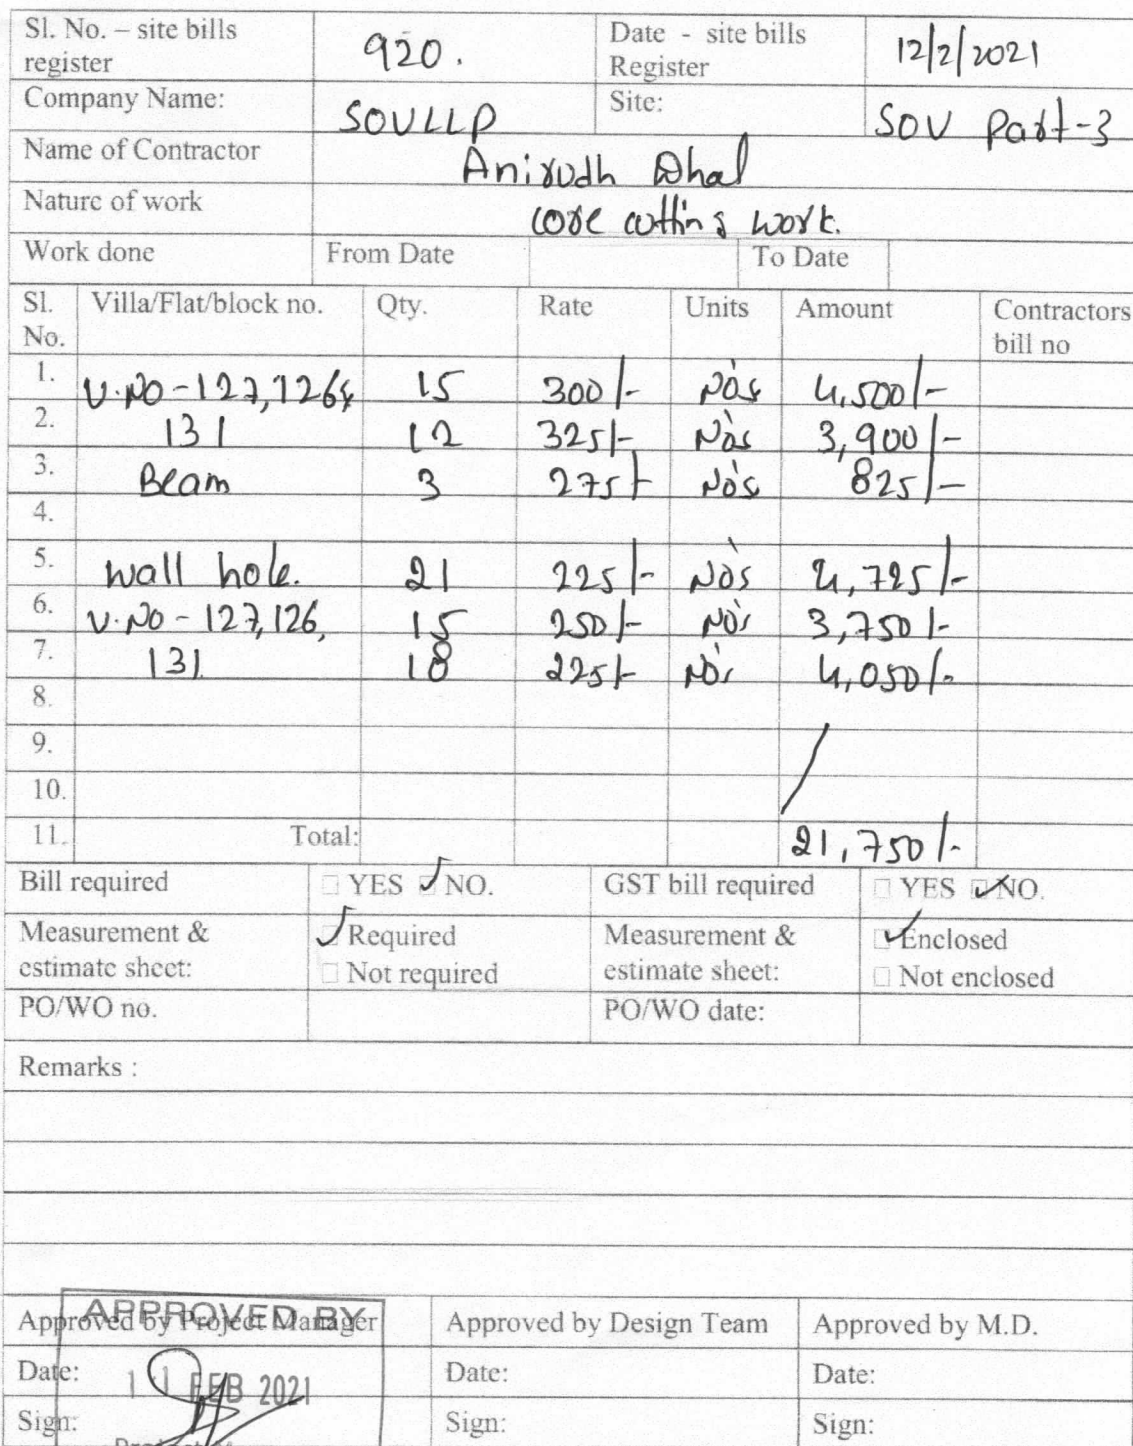 Sl. No. – site bills register 920. Date - site bills Register 12/2/2021
Company Name: SOVLLP Site: SOV Part-3
Name of Contractor Anirudh Dhal
Nature of work core cutting work.
Work done From Date To Date
Sl. No. Villa/Flat/block no. Qty. Rate Units Amount Contractors bill no
1. V.NO-127,126& 15 300/- Nos 4,500/-
2. 131 12 325/- Nos 3,900/-
3. Beam 3 275/- Nos 825/-
4.
5. wall hole. 21 225/- Nos 4,725/-
6. V.NO-127,126, 15 250/- Nos 3,750/-
7. 131 18 225/- Nos 4,050/-
8.
9.
10.
11. Total: 21,750/-
Bill required □ YES ☑ NO. GST bill required □ YES ☑ NO.
Measurement & estimate sheet: ☑ Required □ Not required Measurement & estimate sheet: ☑ Enclosed □ Not enclosed
PO/WO no. PO/WO date:
Remarks :
APPROVED BY
Approved by Project Manager Approved by Design Team Approved by M.D.
Date: 11 FEB 2021 Date: Date:
Sign: Sign: Sign: